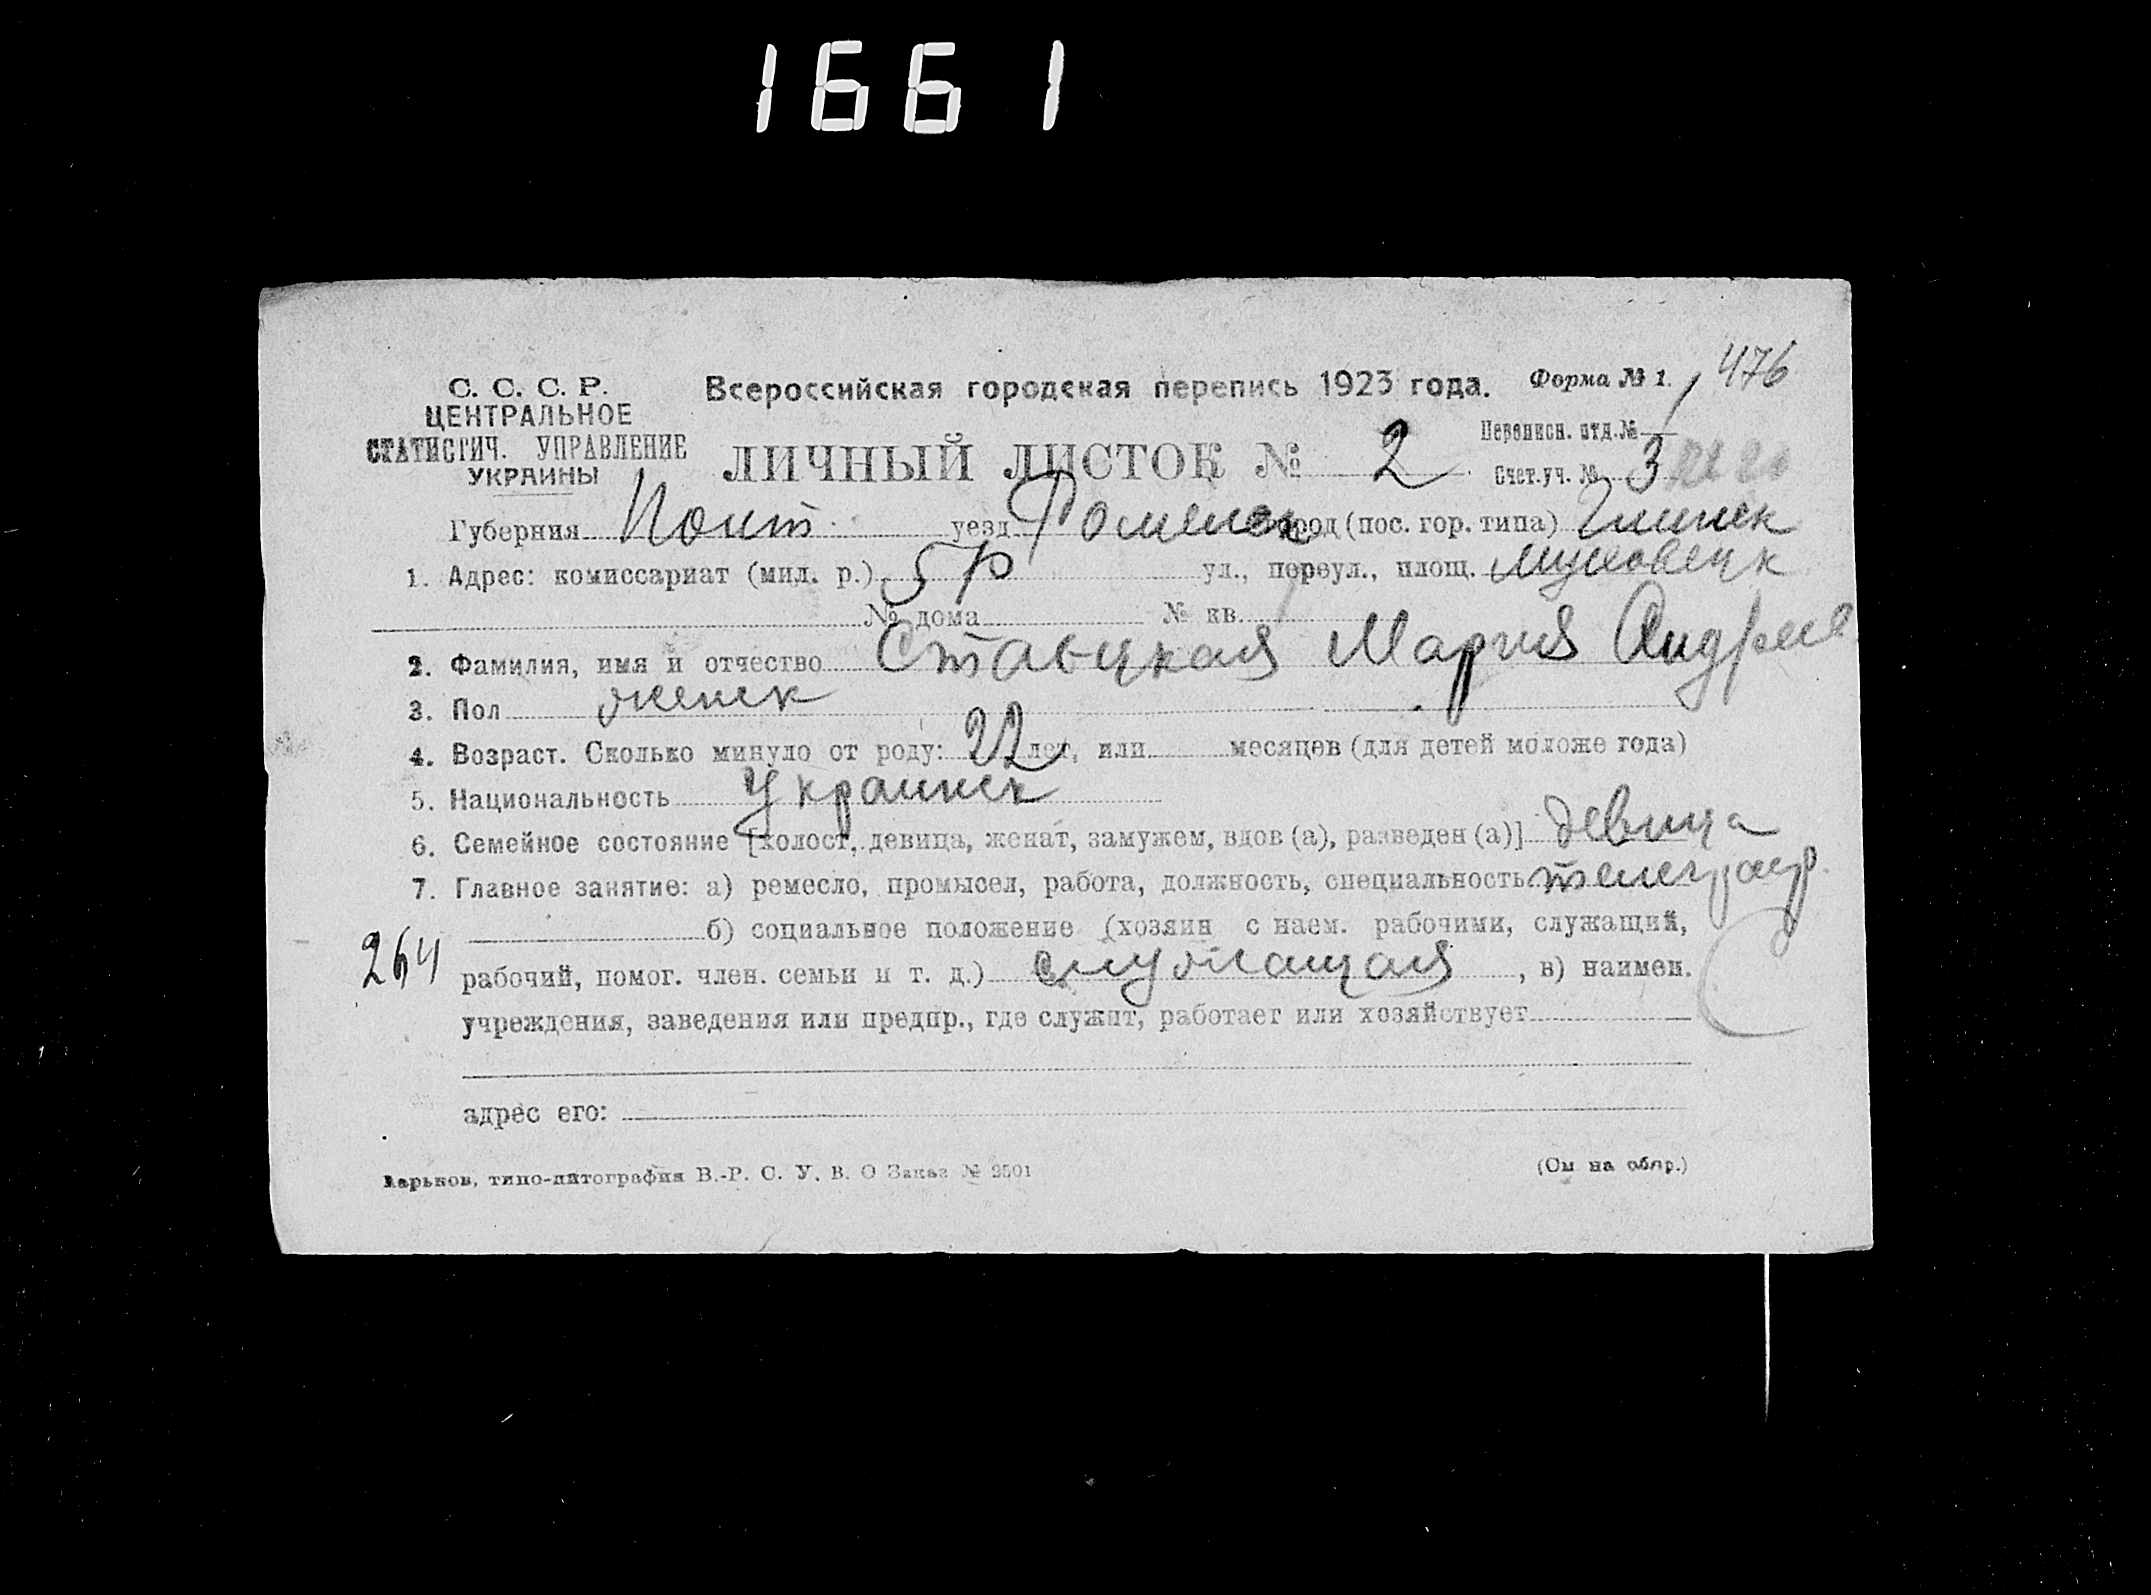 1661
476
С. С. С. Р.
ЦЕНТРАЛЬНОЕ
СТАТИСТИЧ. УПРАВЛЕНИЕ
УКРАИНЫ
Всероссийская городская перепись 1923 года. Форма № 1.
ЛИЧНЫЙ ЛИСТОК № 2
Переписн. отд. № 1
Счет. уч. № 3
Губерния Полт уезд Роменск город (пос. гор. типа) Глинск
1. Адрес: комиссариат (мил. р.) 5 р ул., переул., площ.
№ дома № кв.
2. Фамилия, имя и отчество Ставицкая Мария Андреев
3. Пол женск
4. Возраст. Сколько минуло от роду: 22 лет, или месяцев (для детей моложе года)
5. Национальность Украинск
6. Семейное состояние [холост, девица, женат, замужем, вдов (а), разведен (а)] девица
7. Главное занятие: а) ремесло, промысел, работа, должность, специальность телеграф.
б) социальное положение (хозяин с наем. рабочими, служащий,
264
рабочий, помог. член. семьи и т. д.) служащая, в) наимен.
учреждения, заведения или предпр., где служит, работает или хозяйствует
адрес его:
Харьков, типо-литография В.-Р. С. У. В. О Заказ № 2501
(См на обор.)